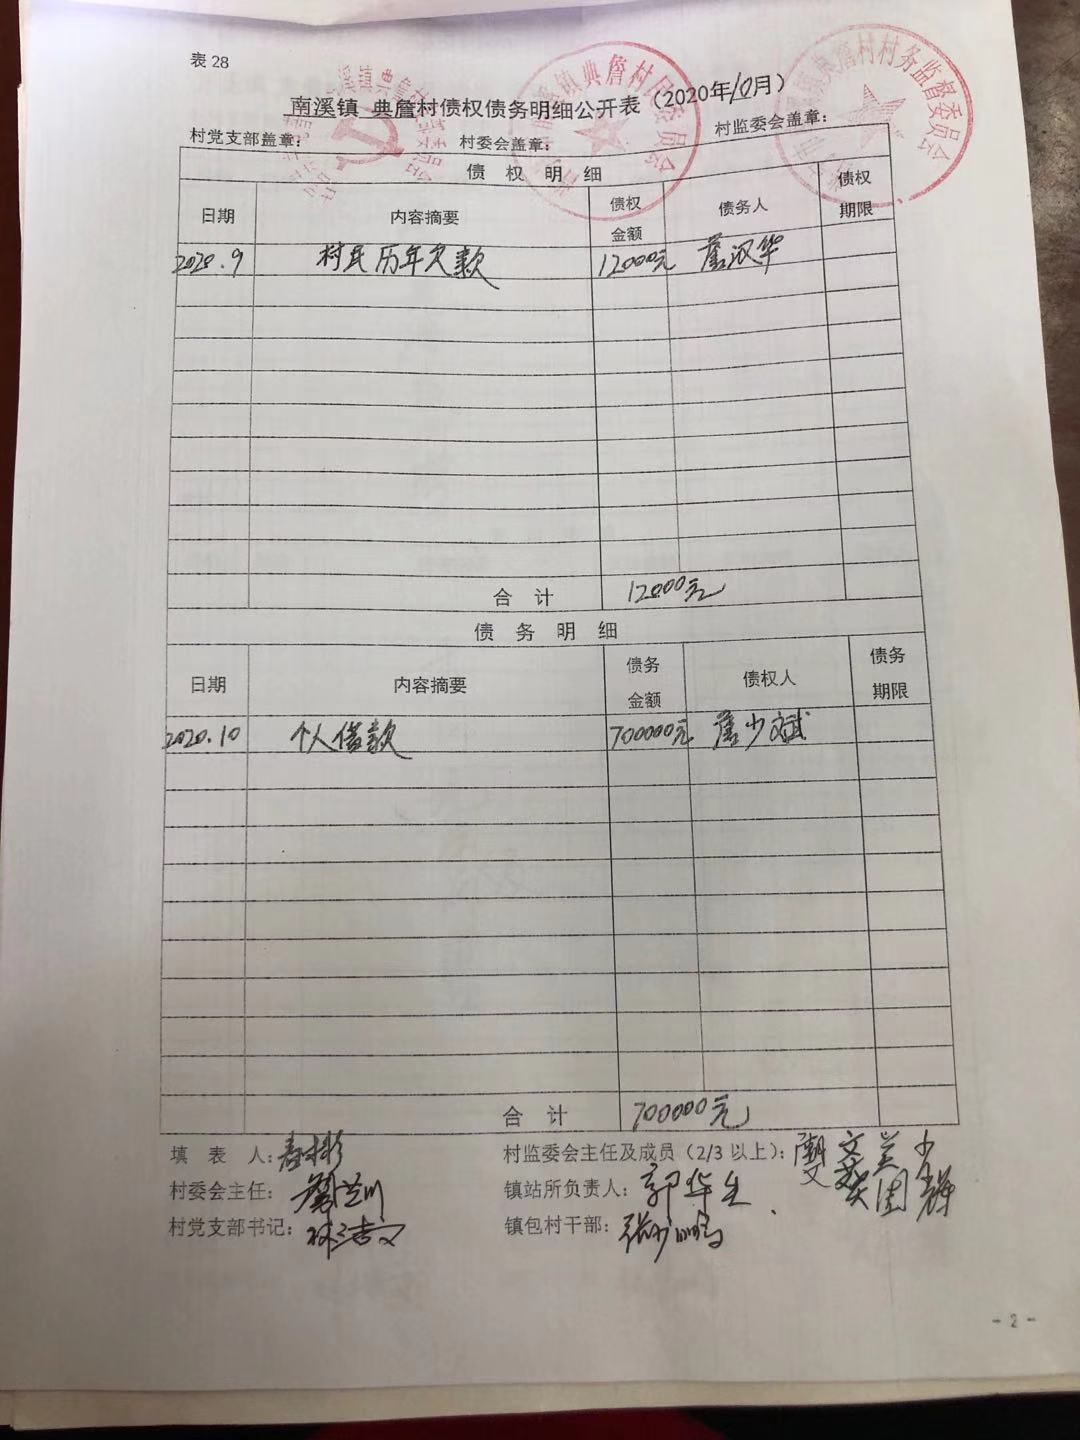 表 28
南溪镇 典詹村债权债务明细公开表（2020年10月）
村党支部盖章： 村委会盖章： 村监委会盖章：
债 权 明 细
日期 内容摘要 债权金额 债务人 债权期限
2020.9 村民历年欠款 12000元 詹汉华
合 计 12000元
债 务 明 细
日期 内容摘要 债务金额 债权人 债务期限
2020.10 个人借款 700000元 詹少斌
合 计 700000元
填 表 人： 村监委会主任及成员（2/3 以上）：
村委会主任： 镇站所负责人：郭华生
村党支部书记： 镇包村干部：
- 2 -